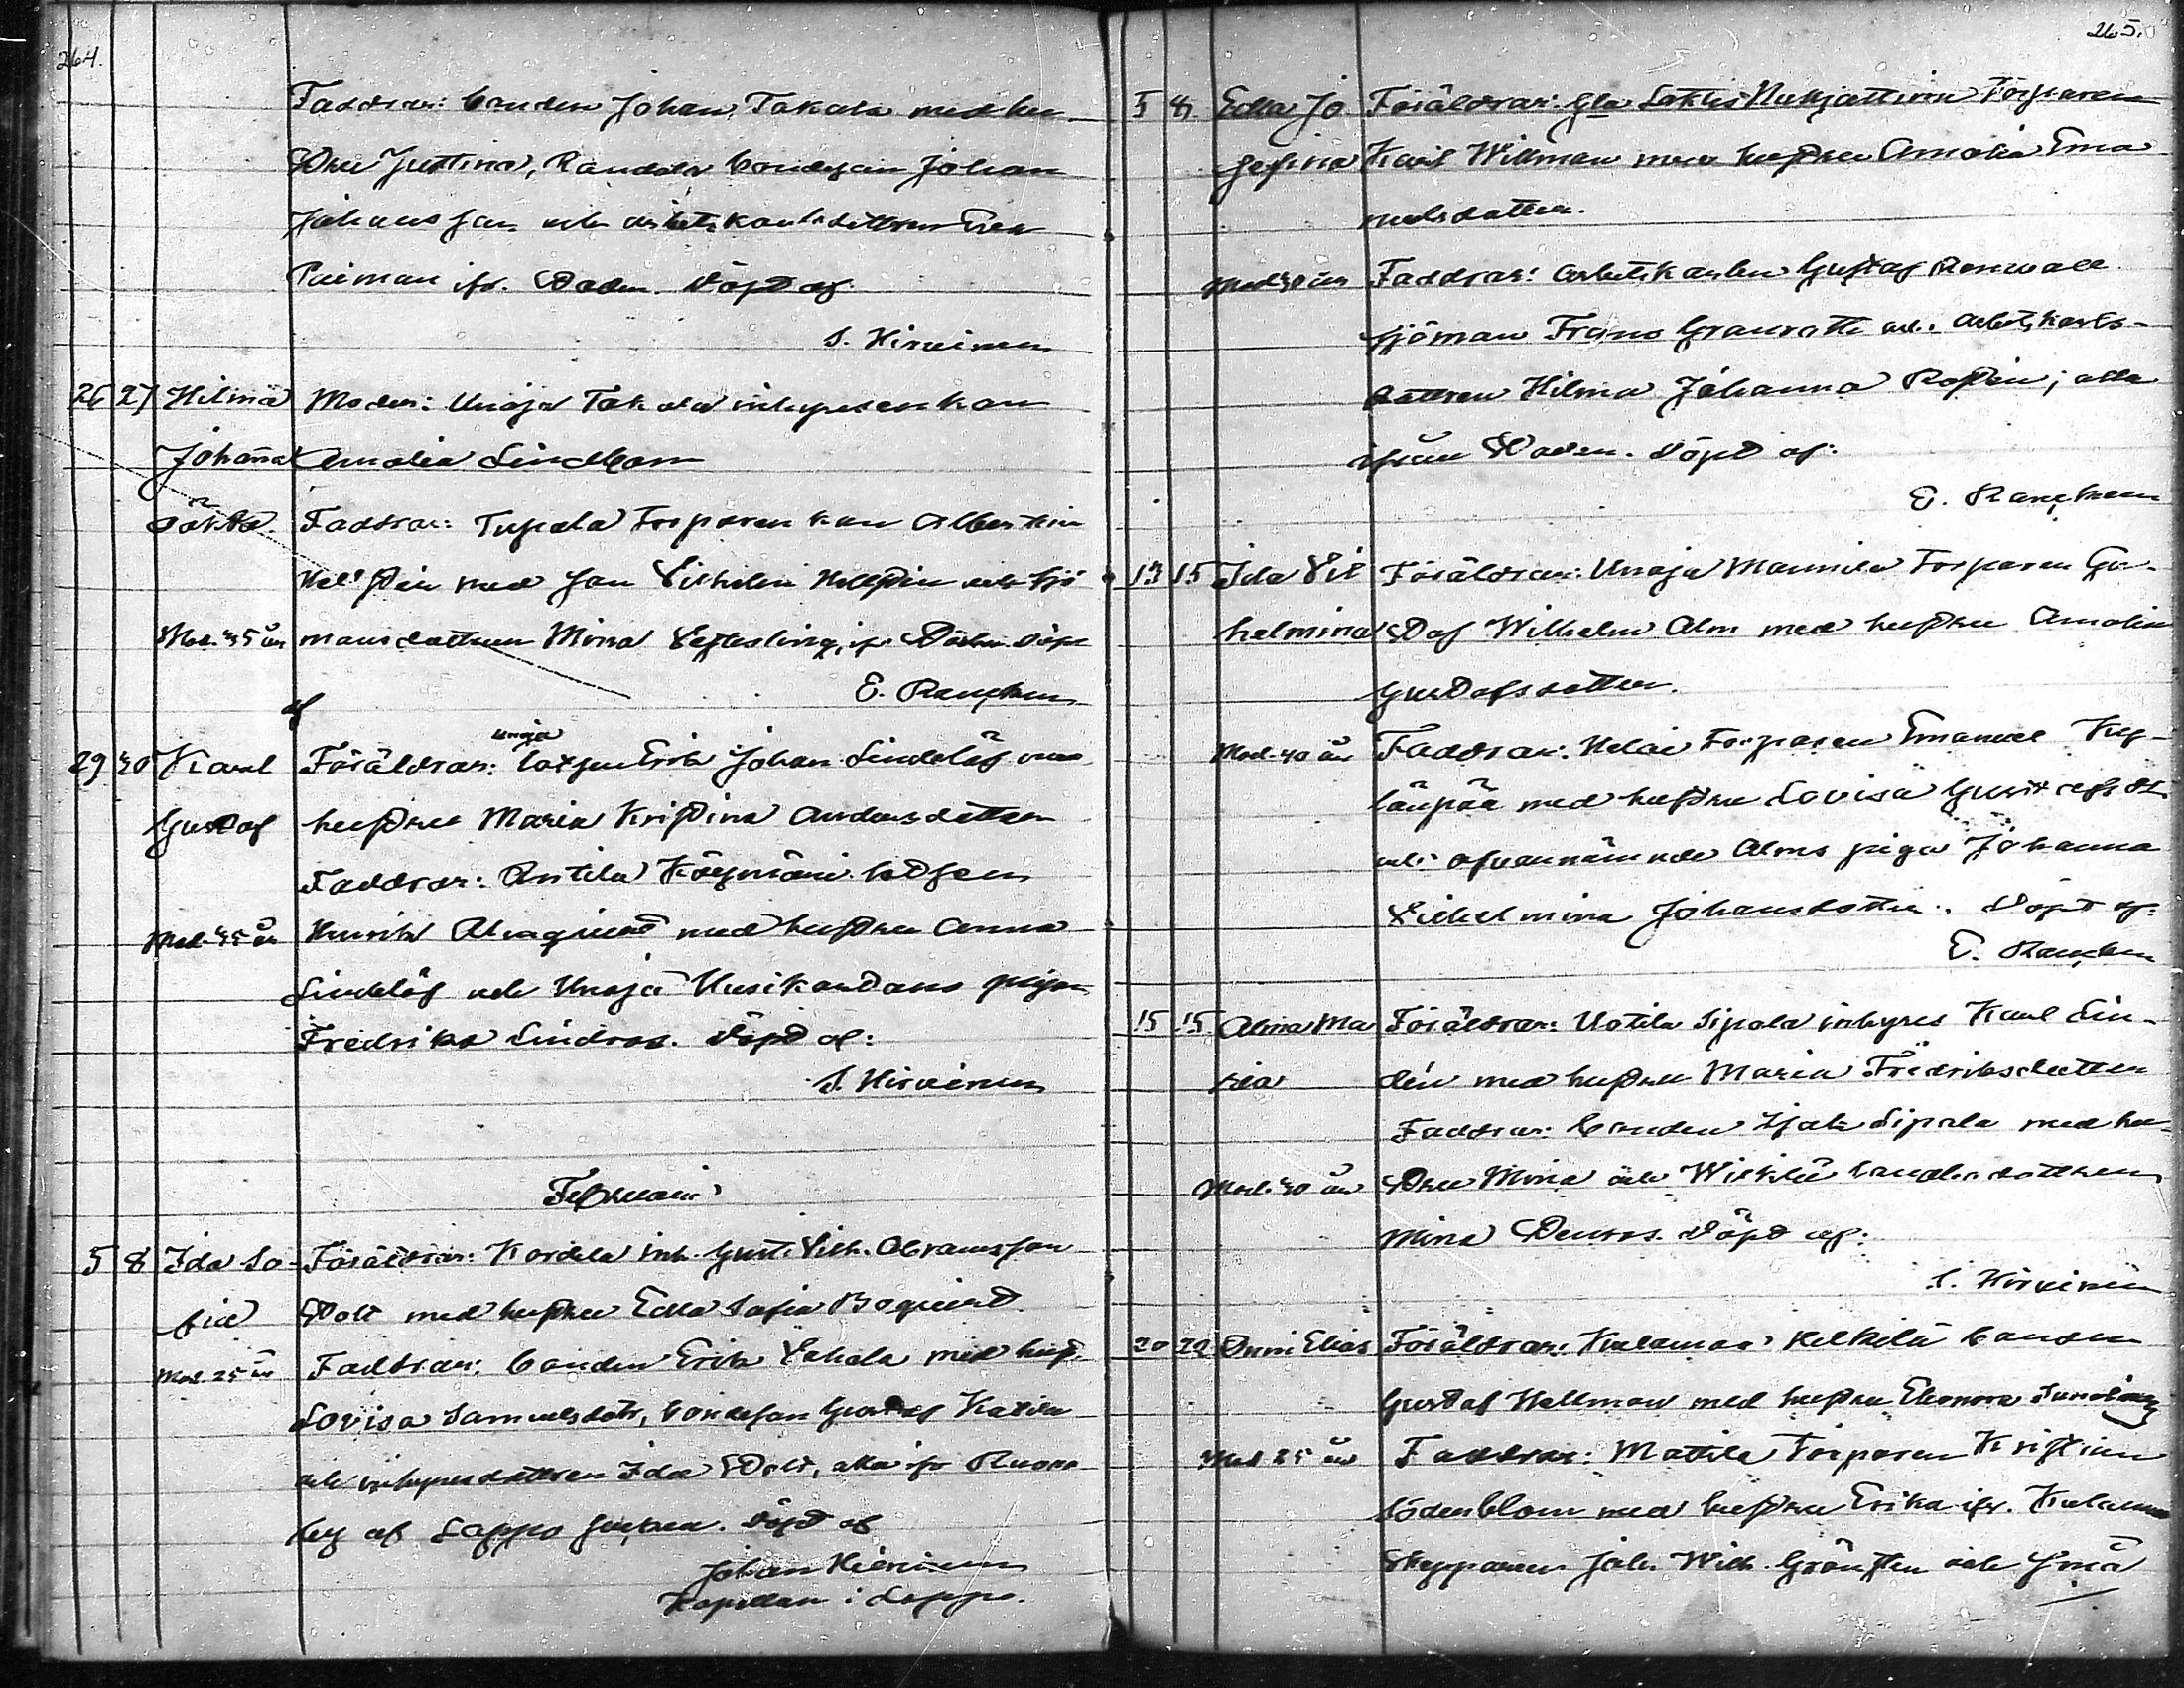 264.
Faddrar: bonden Johan Takala med hu-
stru Justina, Raudala bondeson Johan
Johansson och arbetskarlsdottren Eva
Paiman ifr. Staden. Döpt af
S. Hirvinen
26 27 Hilma Moder: Unaja Takala inhyseskan
Johana Amalia Lindblom
oäkta Faddrar: Tupala Torparenkan Albertina
Hellstén med son Vilhelm Hellstén och sjö
Mod. 35 år mansdottren Mina Vesterling, ifr. Staden. Döpt
af E. Rancken
29 30 Karl Föräldrar: Unaja Erik Johan Lindelöf med
Gustaf hustru Maria Kristina Andersdotter
Faddrar: Antila
Mod. 35 år Henrik Almqvist med hustru Anna
Lindelöf och Unaja Uusikartano pigan
Fredrika Lindros. Döpt af:
S. Hirvinen
Februari
5 8 Ida So- Föräldrar: Kordela inh. Gust. Vilh. Abramsson
fia Stolt med hustru Edla Sofia Boqvist.
Mod. 25 år Faddrar: bonden Erik Yrhola med hust.
Lovisa Samuelsdotr, bondeson Gustaf
och inhysesdottren Ida Stolt, alla ifr
by af Lappo socken. Döpt af
Johan Hirvinen
Kapellan i Lappo.
265.
5 8 Edla Jo Föräldrar: Gla Torparen
sefina Karl Willman med hustru Amalia Ema
nuelsdotter.
Mod. 30 år Faddrar: Arbetskarlen Gustaf Rosvall
sjöman Frans Granroth och arbetskarls-
dottren Hilma Johanna Rostén; alla
ifrån Staden. Döpt af:
E. Rancken
13 15 Ida Vil Föräldrar: Unaja Mannila Torparen Gu-
helmina staf Wilhelm Alm med hustru Amalia
Gustafsdotter.
Mod. 40 år Faddrar: Torparen Emanuel Ky-
länpää med hustru Lovisa Gustafsdt.
och ofvannämnde Alms piga Johanna
Vilhelmina Johansdotter. Döpt af:
E. Rancken
15 15 Alma Ma Föräldrar: Uotila Sipola inhyses Karl Lin-
ria dén med hustru Maria Fredriksdotter
Faddrar: bonden Isak Sipola med hu-
Mod. 30 år stru Mina och Wikilä bondedottren
Mina Döpt af:
S. Hirvinen
20 22 Onni Elias Föräldrar: Kulamaa Kelkilä bonden
Gustaf Hellman med hustru Eleonora Sundberg
Mod. 25 år Faddrar: Mattila Torparen Kristian
Söderblom med hustru Erika ifr. Kulamaa
Skepparen Joh. Wilh. Grönstén och